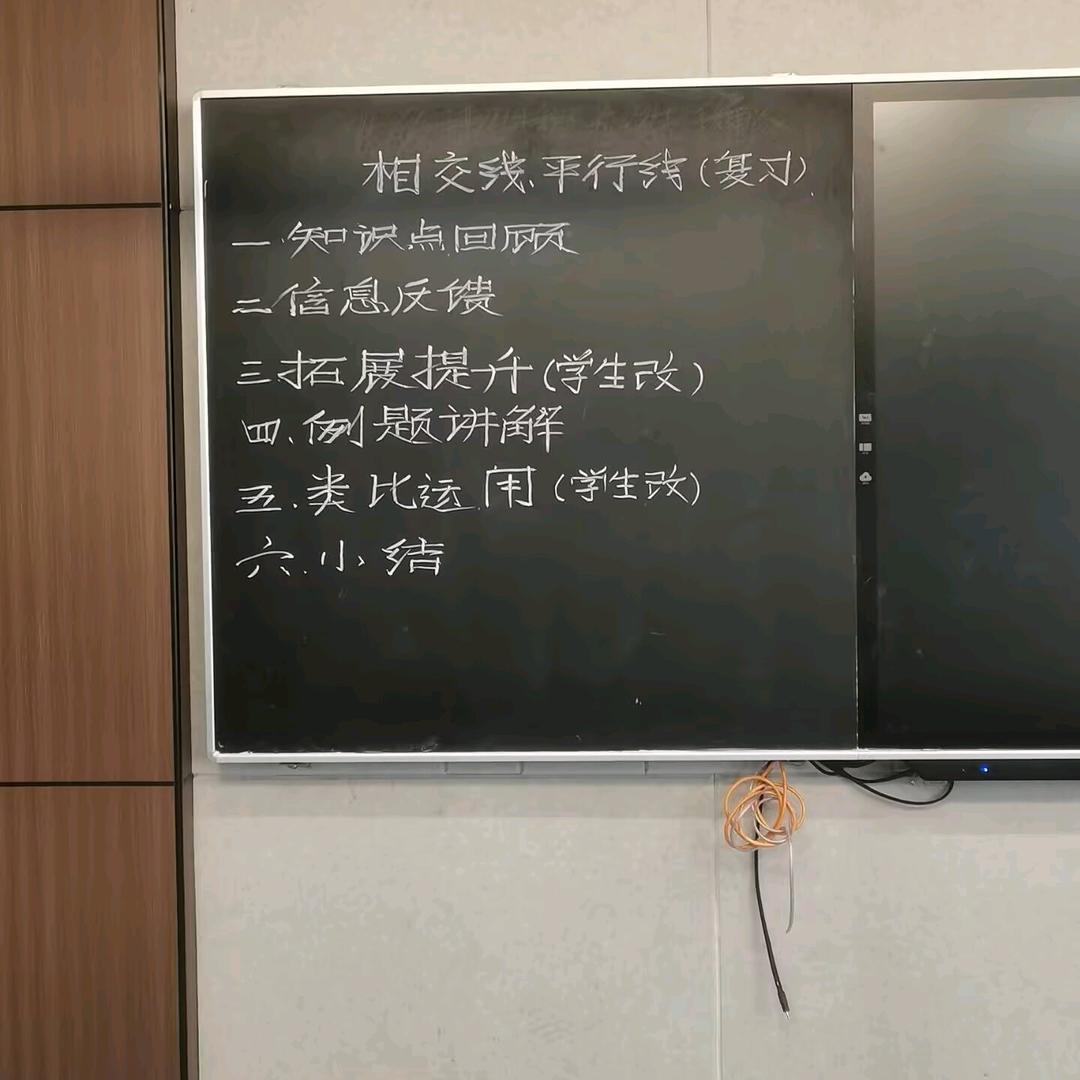 相交线、平行线（复习）
一.知识点回顾
二.信息反馈
三.拓展提升（学生改）
四.例题讲解
五.类比运用（学生改）
六.小结